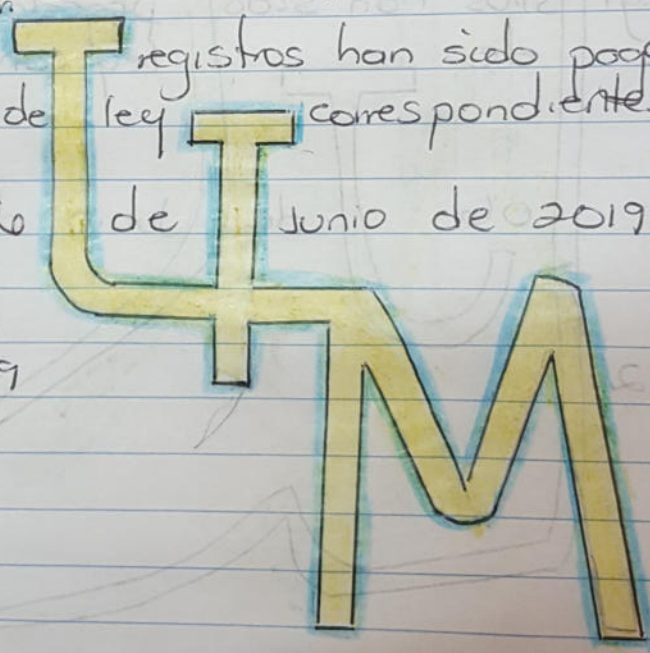 registros han sido
de ley correspondiente
de junio de 2019
9